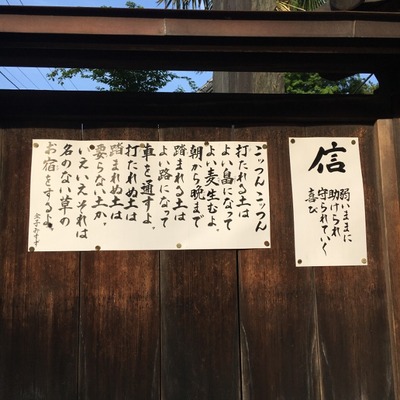 信
弱いままに
助けられ
守られていく
喜び
こッつん こッつん
打たれる土は
よい畠になって
よい麦生むよ。
朝から晩まで
踏まれる土は
よい路になって
車を通すよ。
打たれぬ土は
踏まれぬ土は
要らない土か。
いえいえそれは
名のない草の
お宿をするよ。
金子みすゞ